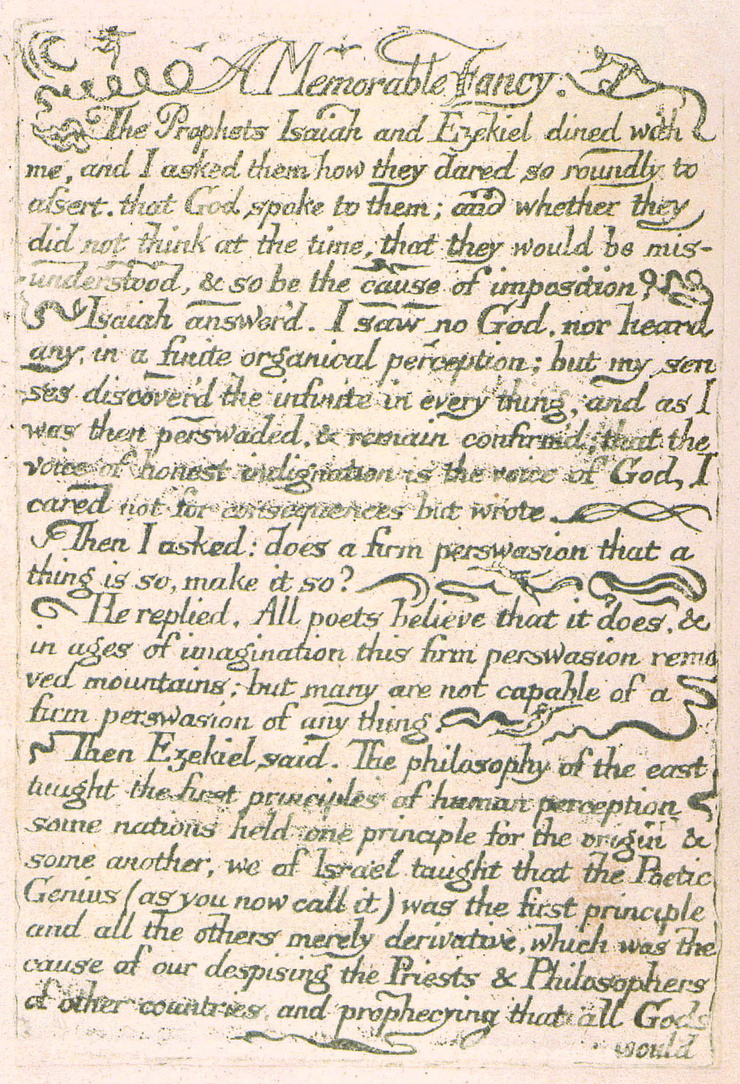 A Memorable Fancy.
The Prophets Isaiah and Ezekiel dined with
me, and I asked them how they dared so roundly to
assert. that God spoke to them; and whether they
did not think at the time, that they would be mis-
understood, & so be the cause of imposition?
Isaiah answer'd. I saw no God, nor heard
any, in a finite organical perception; but my sen
ses discover'd the infinite in every thing, and as I
was then perswaded, & remain confirm'd; that the
voice of honest indignation is the voice of God, I
cared not for consequences but wrote.
Then I asked: does a firm perswasion that a
thing is so, make it so?
He replied, All poets believe that it does, &
in ages of imagination this firm perswasion remo
ved mountains; but many are not capable of a
firm perswasion of any thing.
Then Ezekiel said. The philosophy of the east
taught the first principles of human perception
some nations held one principle for the origin &
some another, we of Israel taught that the Poetic
Genius (as you now call it) was the first principle
and all the others merely derivative, which was the
cause of our despising the Priests & Philosophers
of other countries, and prophecying that all Gods
would